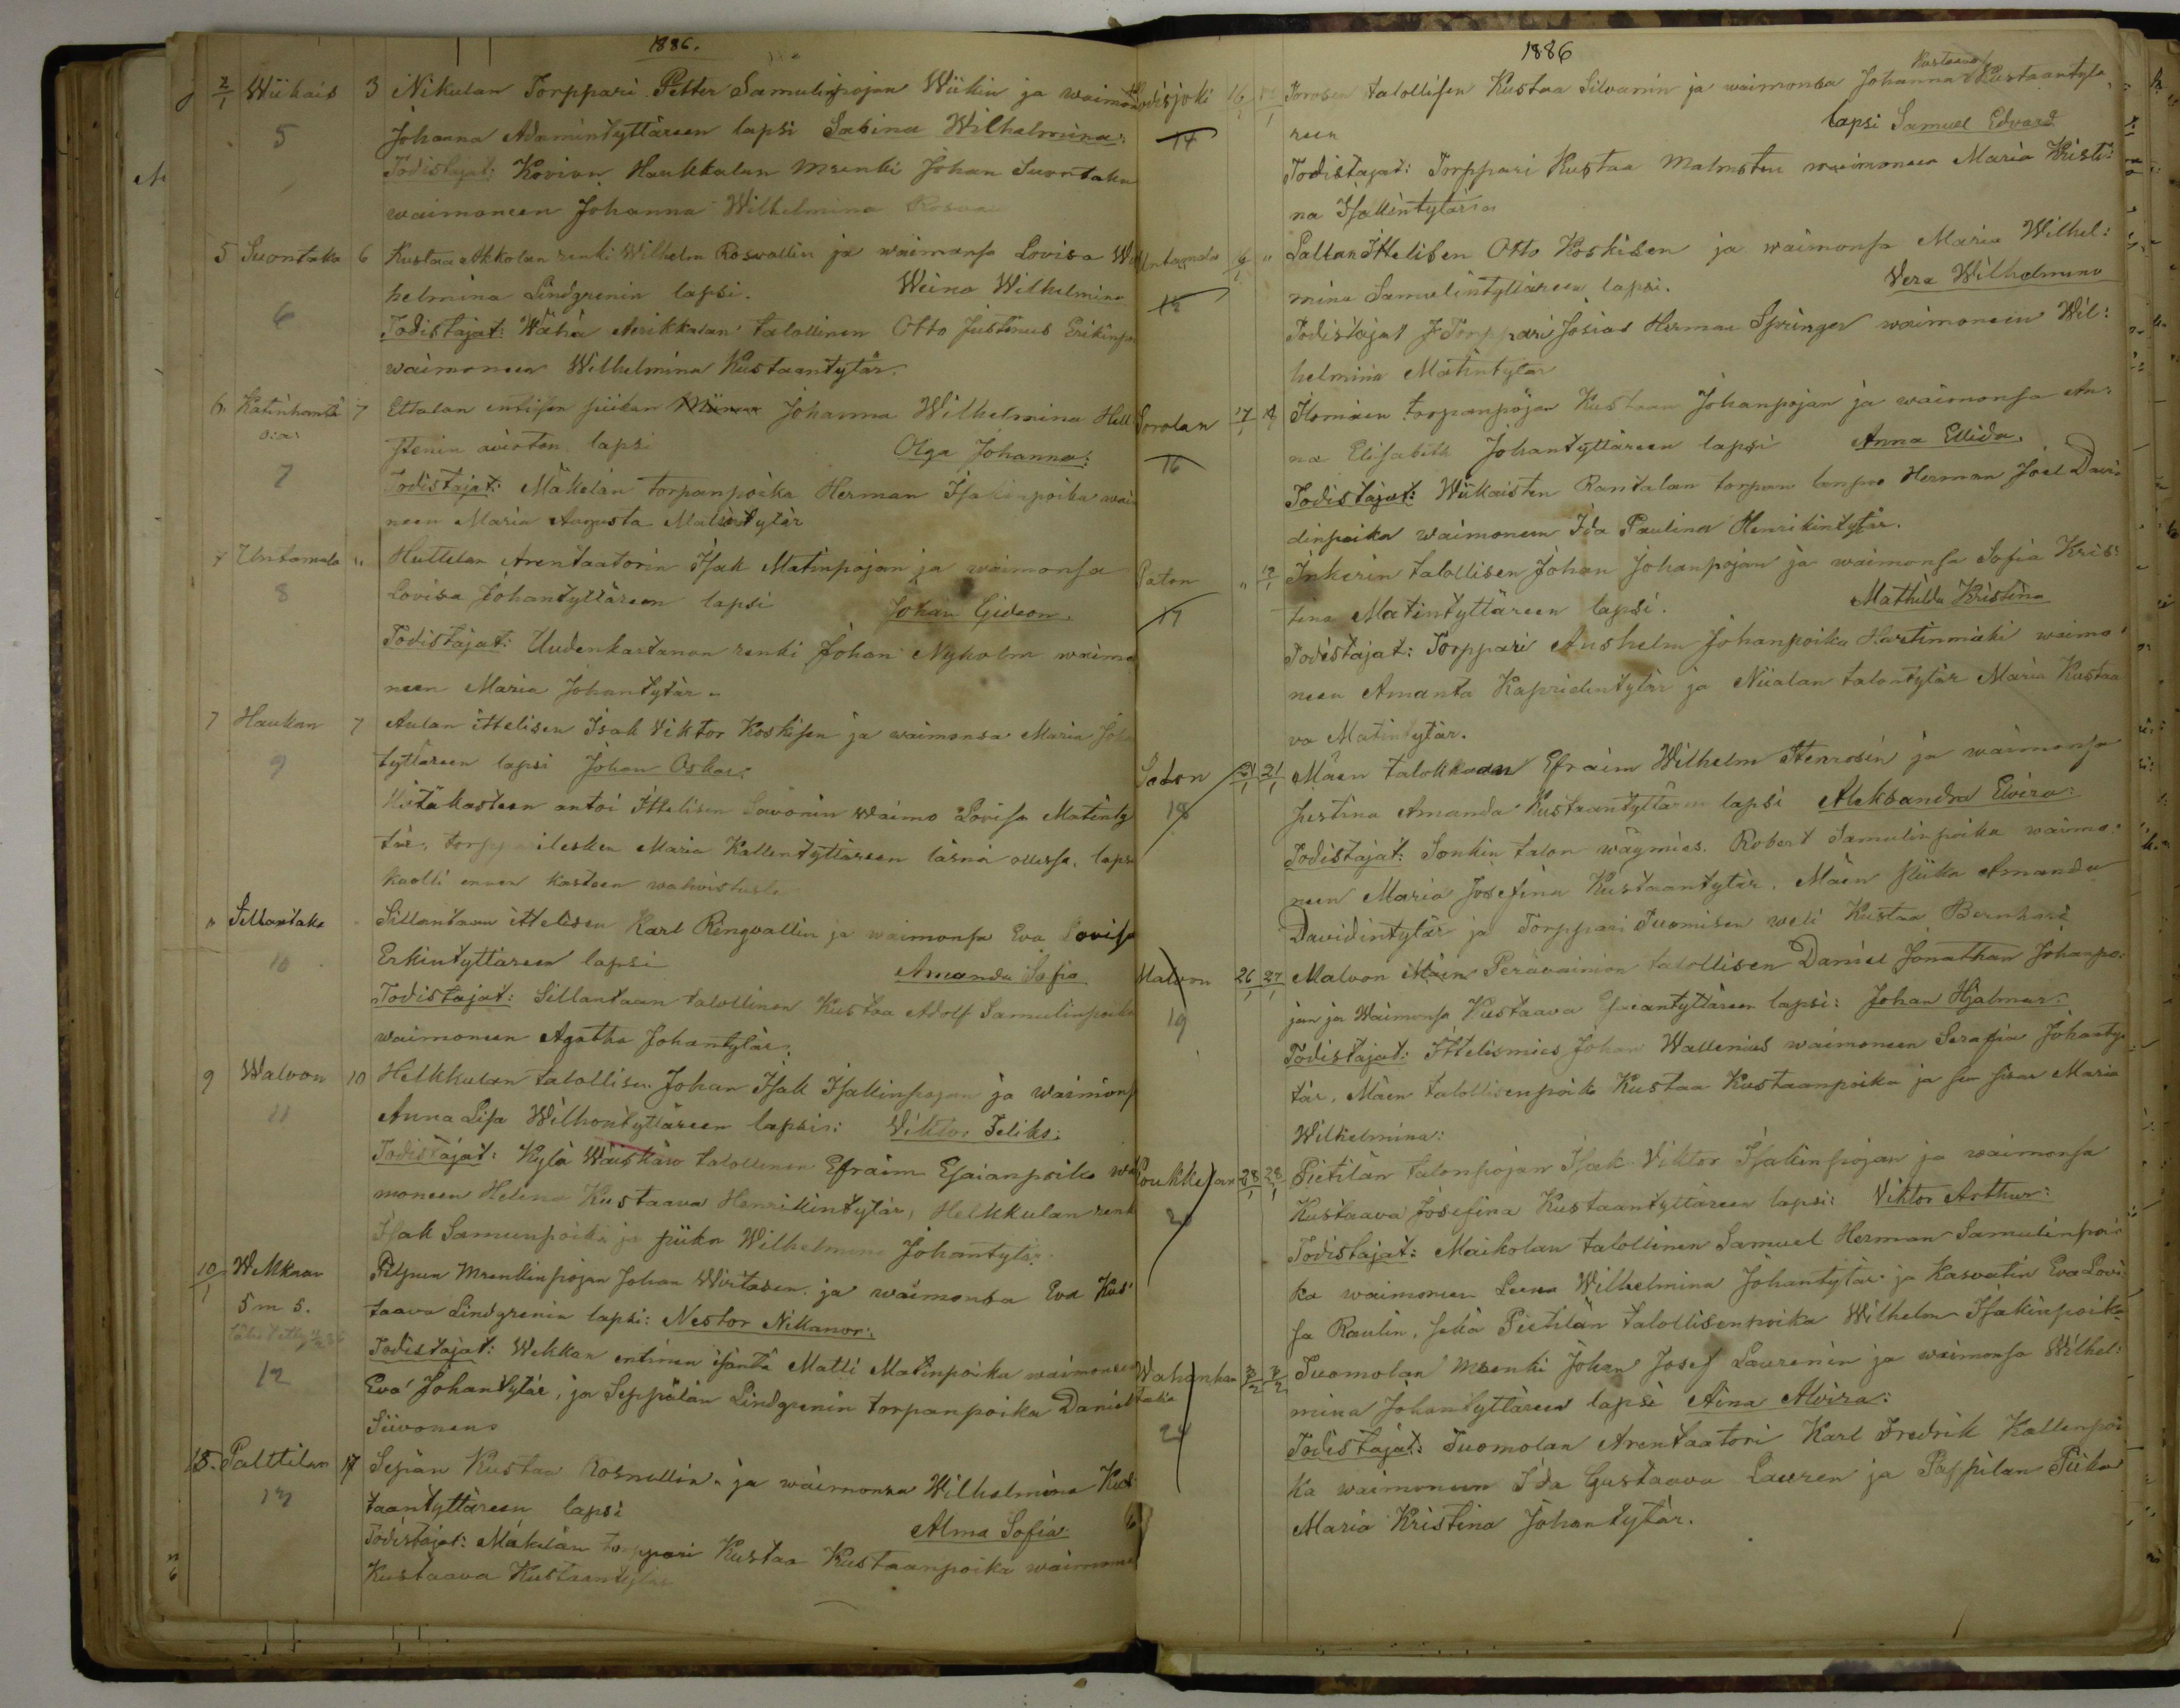 1886.
2/1 Wiikais 3 Nikulan Torppari Petter Samulinpojan Wiikin ja waimon
5 Johanna Adamintyttäreen lapsi Sabina Wilhelmina:
Todistajat: Haukkalan Mrenki Johan Suontaka
waimoneen Johanna Wilhelmina
5 Suontaka 6 Kustaa Akkolan renki Wilhelm Roswallin ja waimonsa Lovisa Wil
helmina Lindgrenin lapsi. Weina Wilhelmina
6 Todistajat: Wähä talollinen Otto Justinus Erikinpo
waimoneen Wilhelmina Kustaantytär.
6 7 Ettalan entisen piikan Johanna Wilhelmina Hell
stenin avioton lapsi Olga Johanna:
7 Todistajat: Mäkelän torpanpoika Herman Isakinpoika waim
neen Maria Augusta Matintytär
7 Untamala " Huttelan Arentaatorin Isak Matinpojan ja waimonsa
8 Lovisa Johantyttäreen lapsi Johan Gideon.
Todistajat: Uudenkartanon renki Johan Nyholm waimo
neen Maria Johantytär
7 Haukan 7 Aulan ittelisen Isak Viktor Koskisen ja waimonsa Maria Joha
9 tyttäreen lapsi Johan Oskar.
Hätäkasteen antoi Ittelisen Sawonin waimo Lovisa Matinty
tär, torpparilesken Maria Kallentyttäreen läsnä ollessa, lapsi
kuolli ennen kasteen wahvistusta
" Sillantaka Sillantaan ittelisen Karl Ringvallin ja waimonsa Eva Lovisa
10 Erkintyttäreen lapsi Amanda Sofia
Todistajat: Sillantaan talollinen Kustaa Adolf Samulinpoika
waimoneen Agatha Johantytär.
9 Walvon 10 Helkkulan talollisen Johan Isak Isakinpojan ja waimons
11 Anna Lisa Wilhontyttäreen lapsi: Viktor Feliks:
Todistajat: Kylä talollinen Efraim Esaianpoika wai
moneen Helena Kustaava Henrikintytär, Helkkulan renki
Isak Samunpoika ja piika Wilhelmina Johantytär.
10/1 Wekkaan Mrenkinpojan Johan Wirtasen ja waimonsa Eva Kus:
5 m 5. taava Lindgrenin lapsi: Nestor Nikanor:
Todistajat: Wekkan entinen isäntä Matti Matinpoika waimoneen
12 Eva Johantytär, ja Seppälän Lindgrenin torpanpoika Daniel
Siivonens
15. Palttilan 17 Sepän Kustaa Rosnellin ja waimonsa Wilhelmina Kus
13 taantyttäreen lapsi
Alma Sofia
Todistajat: Mäkelän torppari Kustaa Kustaanpoika waimone
Kustaava Kustaantytär
1886
Kustaava
16 talollisen Kustaa Silvanin ja waimonsa Johanna Kustaantyttä
14 reen lapsi Samuel Edvard
Todistajat: Torppari Kustaa Malmsten waimoneen Maria Kristi:
na Isakintytär
Untamala 16/1 " Ittelisen Otto Koskisen ja waimonsa Maria Wilhel:
15 mina Samuelintyttäreen lapsi. Vera Wilhelmina
Todistajat Torppari Josias Herman Springer waimoneen Wil:
helmina Matintytär
Sorolan 17/1 torpanpojan Kustaan Johanpojan ja waimonsa An:
16 na Elisabith Johantyttäreen lapsi Anna Ellida.
Todistajat: Wiikaisten Rantalan torpan Herman Joel Davi
dinpoika waimoneen Ida Paulina Henrikintytär.
" 19/1 Inkerin talollisen Johan Johanpojan ja waimonsa Sofia Kris:
17 tina Matintyttäreen lapsi. Mathilda Kristina
Todistajat: Torppari Anshelm Johanpoika Hartinmäki waimo
neen Amanta Kapriclintytär ja Niialan talontytär Maria Kustaa
va Matintytär.
21/1 21/1 Mäen talokkaan Efraim Wilhelm Stenrosin ja waimonsa
18 Justina Amanda Kustaantyttäreen lapsi Aleksandra Elvira:
Todistajat: Sonkin talon wäymies Robert Samulinpoika waimo:
neen Maria Josefina Kustaantytär. Mäen piika Amanda
Davidintytär ja Torppari Tuomisen weli Kustaa Bernhard
26/1 27/1 Malvon Perävainion talollisen Daniel Jonathan Johanpo:
19 jan ja Waimonsa Kustaava Esaiantyttäreen lapsi: Johan Hjalmar:
Todistajat: Ittelismies Johan Wallenius waimoneen Serafia Johanty:
tär, Mäen talollisenpoik Kustaa Kustaanpoika ja sen sisar Maria
Wilhelmina:
28/1 28/1 Pietilän talonpojan Isak Viktor Isakinpojan ja waimonsa
20 Kustaava Josefina Kustaantyttäreen lapsi: Viktor Arthur:
Todistajat: Maikolan talollinen Samuel Herman Samulinpoi
ka waimoneen Leena Wilhelmina Johantytär ja Kasvatin Eva Lovi
sa Raulin, sekä Pietilän talollisenpoika Wilhelm Isakinpoika
3/2 3/2 Tuomolan Mrenki Johan Josef Laurenin ja waimonsa Wilhel:
mina Johantyttäreen lapsi Aina Alvira:
21 Todistajat: Tuomolan Arentaatori Karl Fredrik Kallenpoi
ka waimoneen Ida Gustaava Lauren ja Pappilan Piika
Maria Kristina Johantytär.